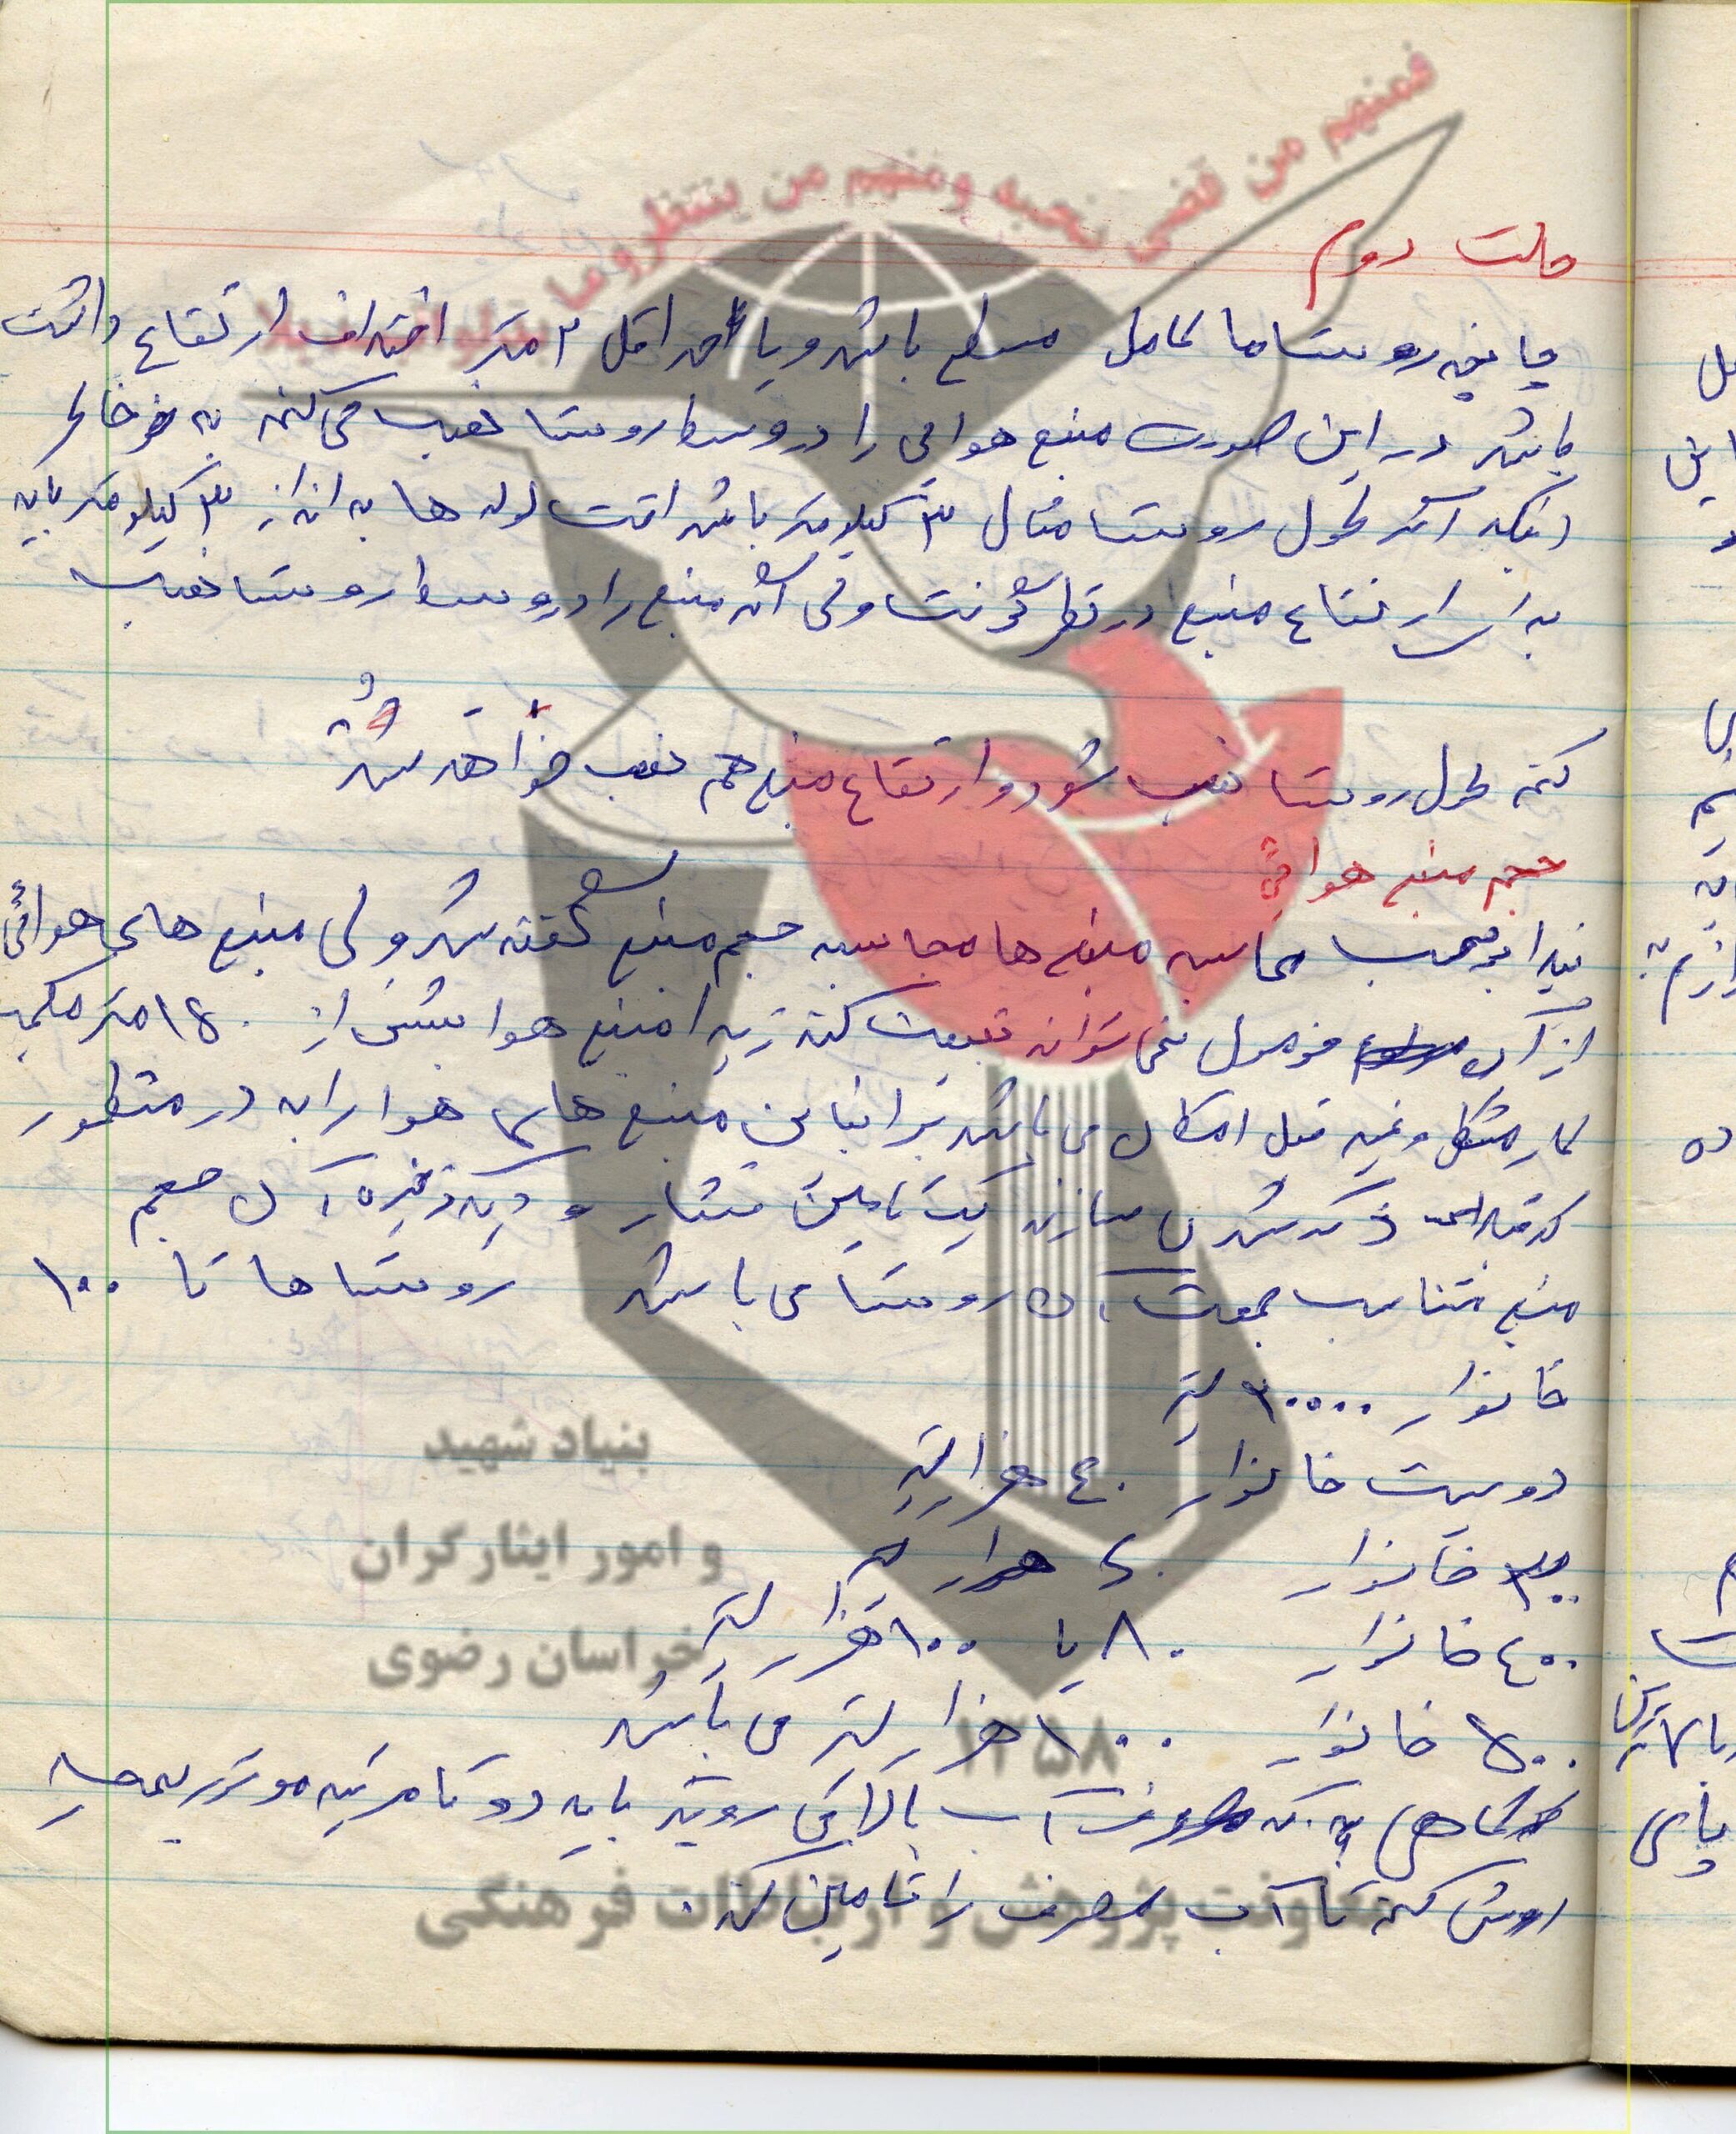 فمنهم من قضی نحبه ومنهم من ینتظر وما بدلوا تبدیلا
حالت دوم
چانچه روستاما کامل مسطح باشد و یا حداقل ۲ متر اختلاف ارتفاع داشته
باشد در این صورت منبع هوائی را در وسط روستا نصب می کنند به خاطر
اینکه اگر طول روستا مثال ۳ کیلومتر باشد افت لوله ها به اندازه ۳ کیلومتر باید
برای ارتفاع منبع در نظر گرفت ولی اگر منبع را در وسط روستا نصب
کنند طول روستا نصب شود و ارتفاع منبع هم نصب خواهد شد
حجم منبع هوائی
محاسبه منبع ها محاسبه حجم منبع گفته شد ولی منبع های هوائی
از آن فرمول نمی تواند تبعیت کند زیرا منبع هوا بیش از ۱۵۰ متر مکعب
کار مشکل و غیر قبل امکان می باشد بنابراین منبع های هوا را به در منظور
ذکر شد سازند یک تامین فشار و دیگه ذخیره آن حجم
منبع متناسب جمعیت آن روستا می باشد روستا ها تا ۱۰۰
خانوار ۲۰۰۰۰ لیتر
دویست خانوار ۴۰ هزار لیتر
۳۰۰ خانوار ۶۰ هزار لیتر
۴۰۰ خانوار ۸۰ یا ۱۰۰ هزار لیتر
۵۰۰ خانوار ۱۰۰ هزار لیتر می باشد
گاهی که مصرف آب بالا می رود باید دو تا مرتبه موتور پمپ
روشن کنند تا آب مصرف را تامین کند.
بنیاد شهید
و امور ایثارگران
خراسان رضوی
۱۳۵۸
معاونت پژوهش و ارتباطات فرهنگی